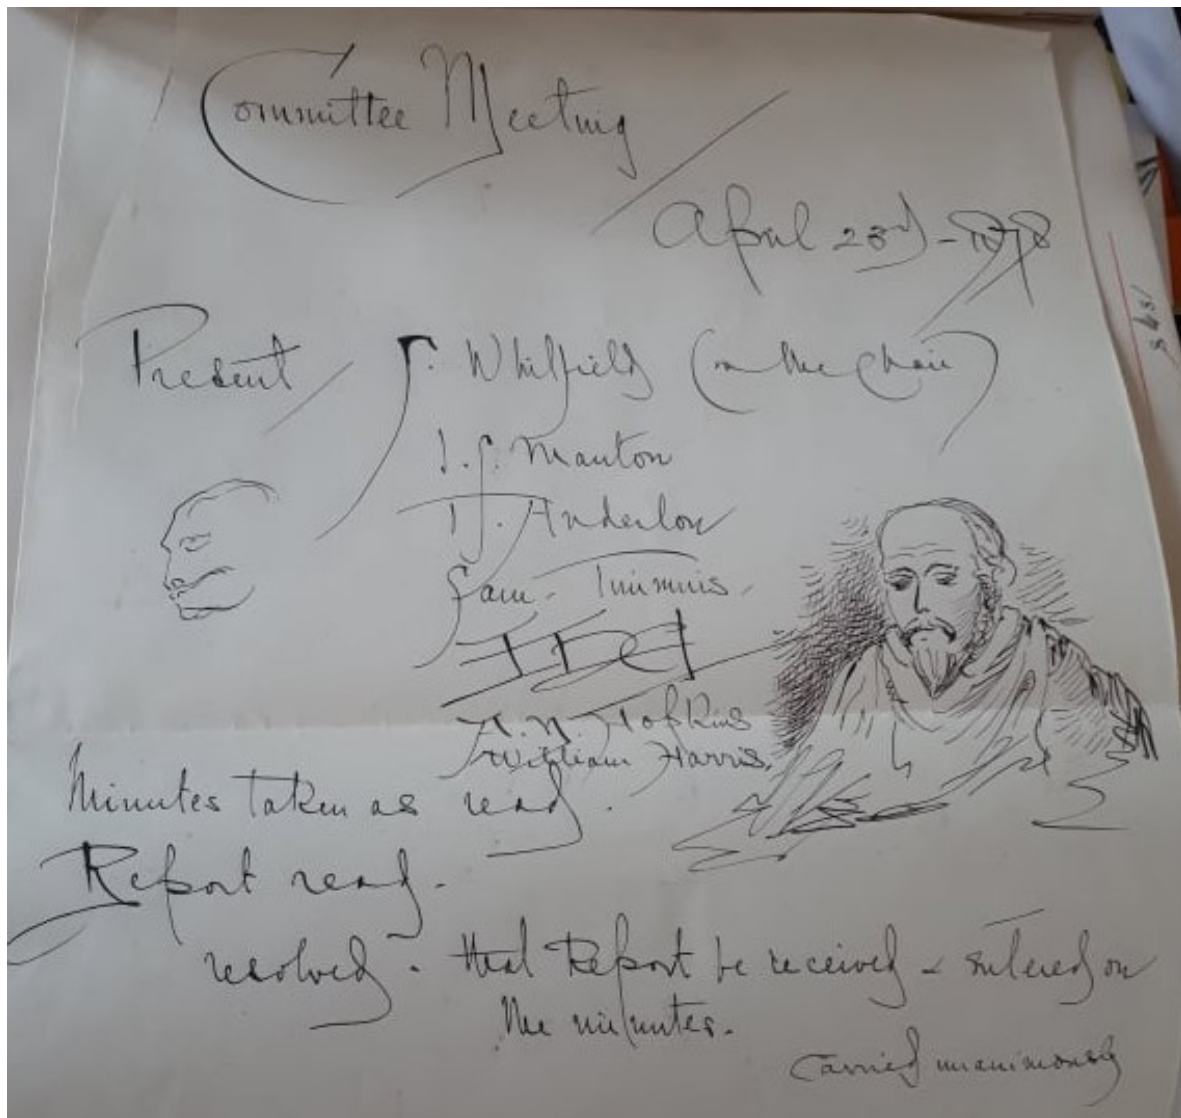 Committee Meeting
April 23rd - 1878
Present / J. Whitfield (in the Chair)
J. S. Manton
T. J. Anderson
Sam. Timmins.
A. N. Hopkins
William Harris.
Minutes taken as read.
Report read.
resolved. that Report be received & entered on
the minutes.
Carried unanimously